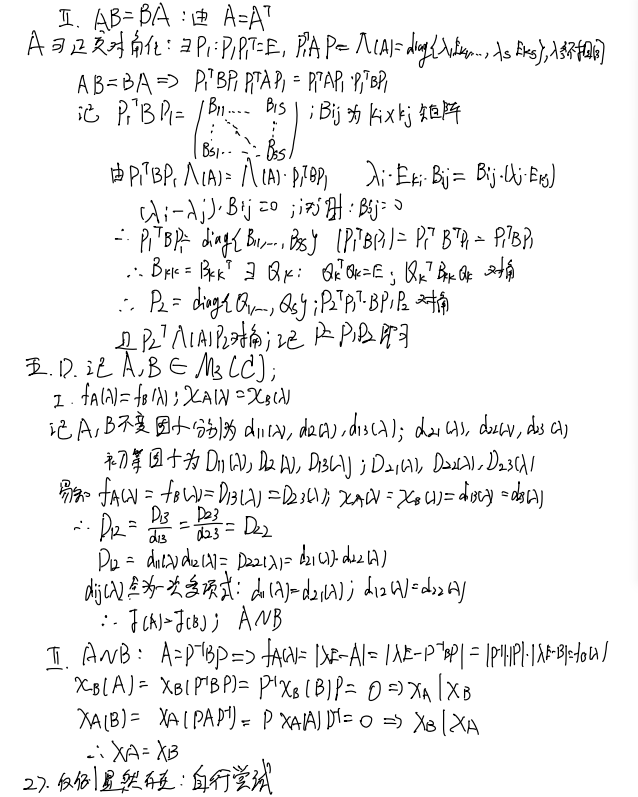 II. AB=BA:由 A=Aᵀ
A可正交对角化:∃P₁:P₁P₁ᵀ=E, P₁ᵀAP₁=Λ(A)=diag{λ₁Eₖ₁,…, λₛEₖₛ},λᵢ不相同
AB=BA ⇒ P₁ᵀBP₁P₁ᵀAP₁ = P₁ᵀAP₁·P₁ᵀBP₁
记 P₁ᵀBP₁= (B₁₁ …… B₁ₛ ⋮ ⋱ ⋮ Bₛ₁ …… Bₛₛ) ; Bij为 ki×kj 矩阵
由P₁ᵀBP₁Λ(A)=Λ(A)·P₁ᵀBP₁ λi·Eki·Bij = Bij·(λj·Ekj)
(λi-λj)·Bij=0 ; i≠j时:Bij=0
∴ P₁ᵀBP₁= diag{B₁₁,…, Bₛₛ} (P₁ᵀBP₁)ᵀ= P₁ᵀBᵀP₁ = P₁ᵀBP₁
∴ Bkk = Bkkᵀ ∃ Qk: QkᵀQk=E ; QkᵀBkkQk 对角
∴ P₂ = diag{Q₁,…, Qₛ} ; P₂ᵀP₁ᵀ·BP₁P₂ 对角
且P₂ᵀΛ(A)P₂对角;记 P=P₁P₂ 即可
五.1). 记 A,B∈M₃(C);
I. fA(λ)=fB(λ);χA(λ)=χB(λ)
记A,B不变因子分别为 d₁₁(λ), d₁₂(λ), d₁₃(λ); d₂₁(λ), d₂₂(λ), d₂₃(λ)
初等因子为 D₁₁(λ), D₁₂(λ), D₁₃(λ) ; D₂₁(λ), D₂₂(λ), D₂₃(λ)
易知 fA(λ) = fB(λ)=D₁₃(λ)=D₂₃(λ); χA(λ) = χB(λ)=d₁₃(λ) =d₂₃(λ)
∴ D₁₂ = D₁₃/d₁₃ = D₂₃/d₂₃ = D₂₂
D₁₂ = d₁₁(λ)d₁₂(λ)= D₂₂(λ)= d₂₁(λ)·d₂₂(λ)
dij(λ)为一次多项式: d₁₁(λ)=d₂₁(λ); d₁₂(λ)=d₂₂(λ)
∴ J(A)=J(B); A∽B
II. A∽B: A=P⁻¹BP ⇒ fA(λ)=|λE-A|=|λE-P⁻¹BP|=|P⁻¹|·|P|·|λE-B|=fB(λ)
χB(A)= χB(P⁻¹BP)= P⁻¹χB(B)P= 0 ⇒ χA|χB
χA(B)= χA(PAP⁻¹)= PχA(A)P⁻¹=0 ⇒ χB|χA
∴ χA=χB
2). 显然存在:自行尝试